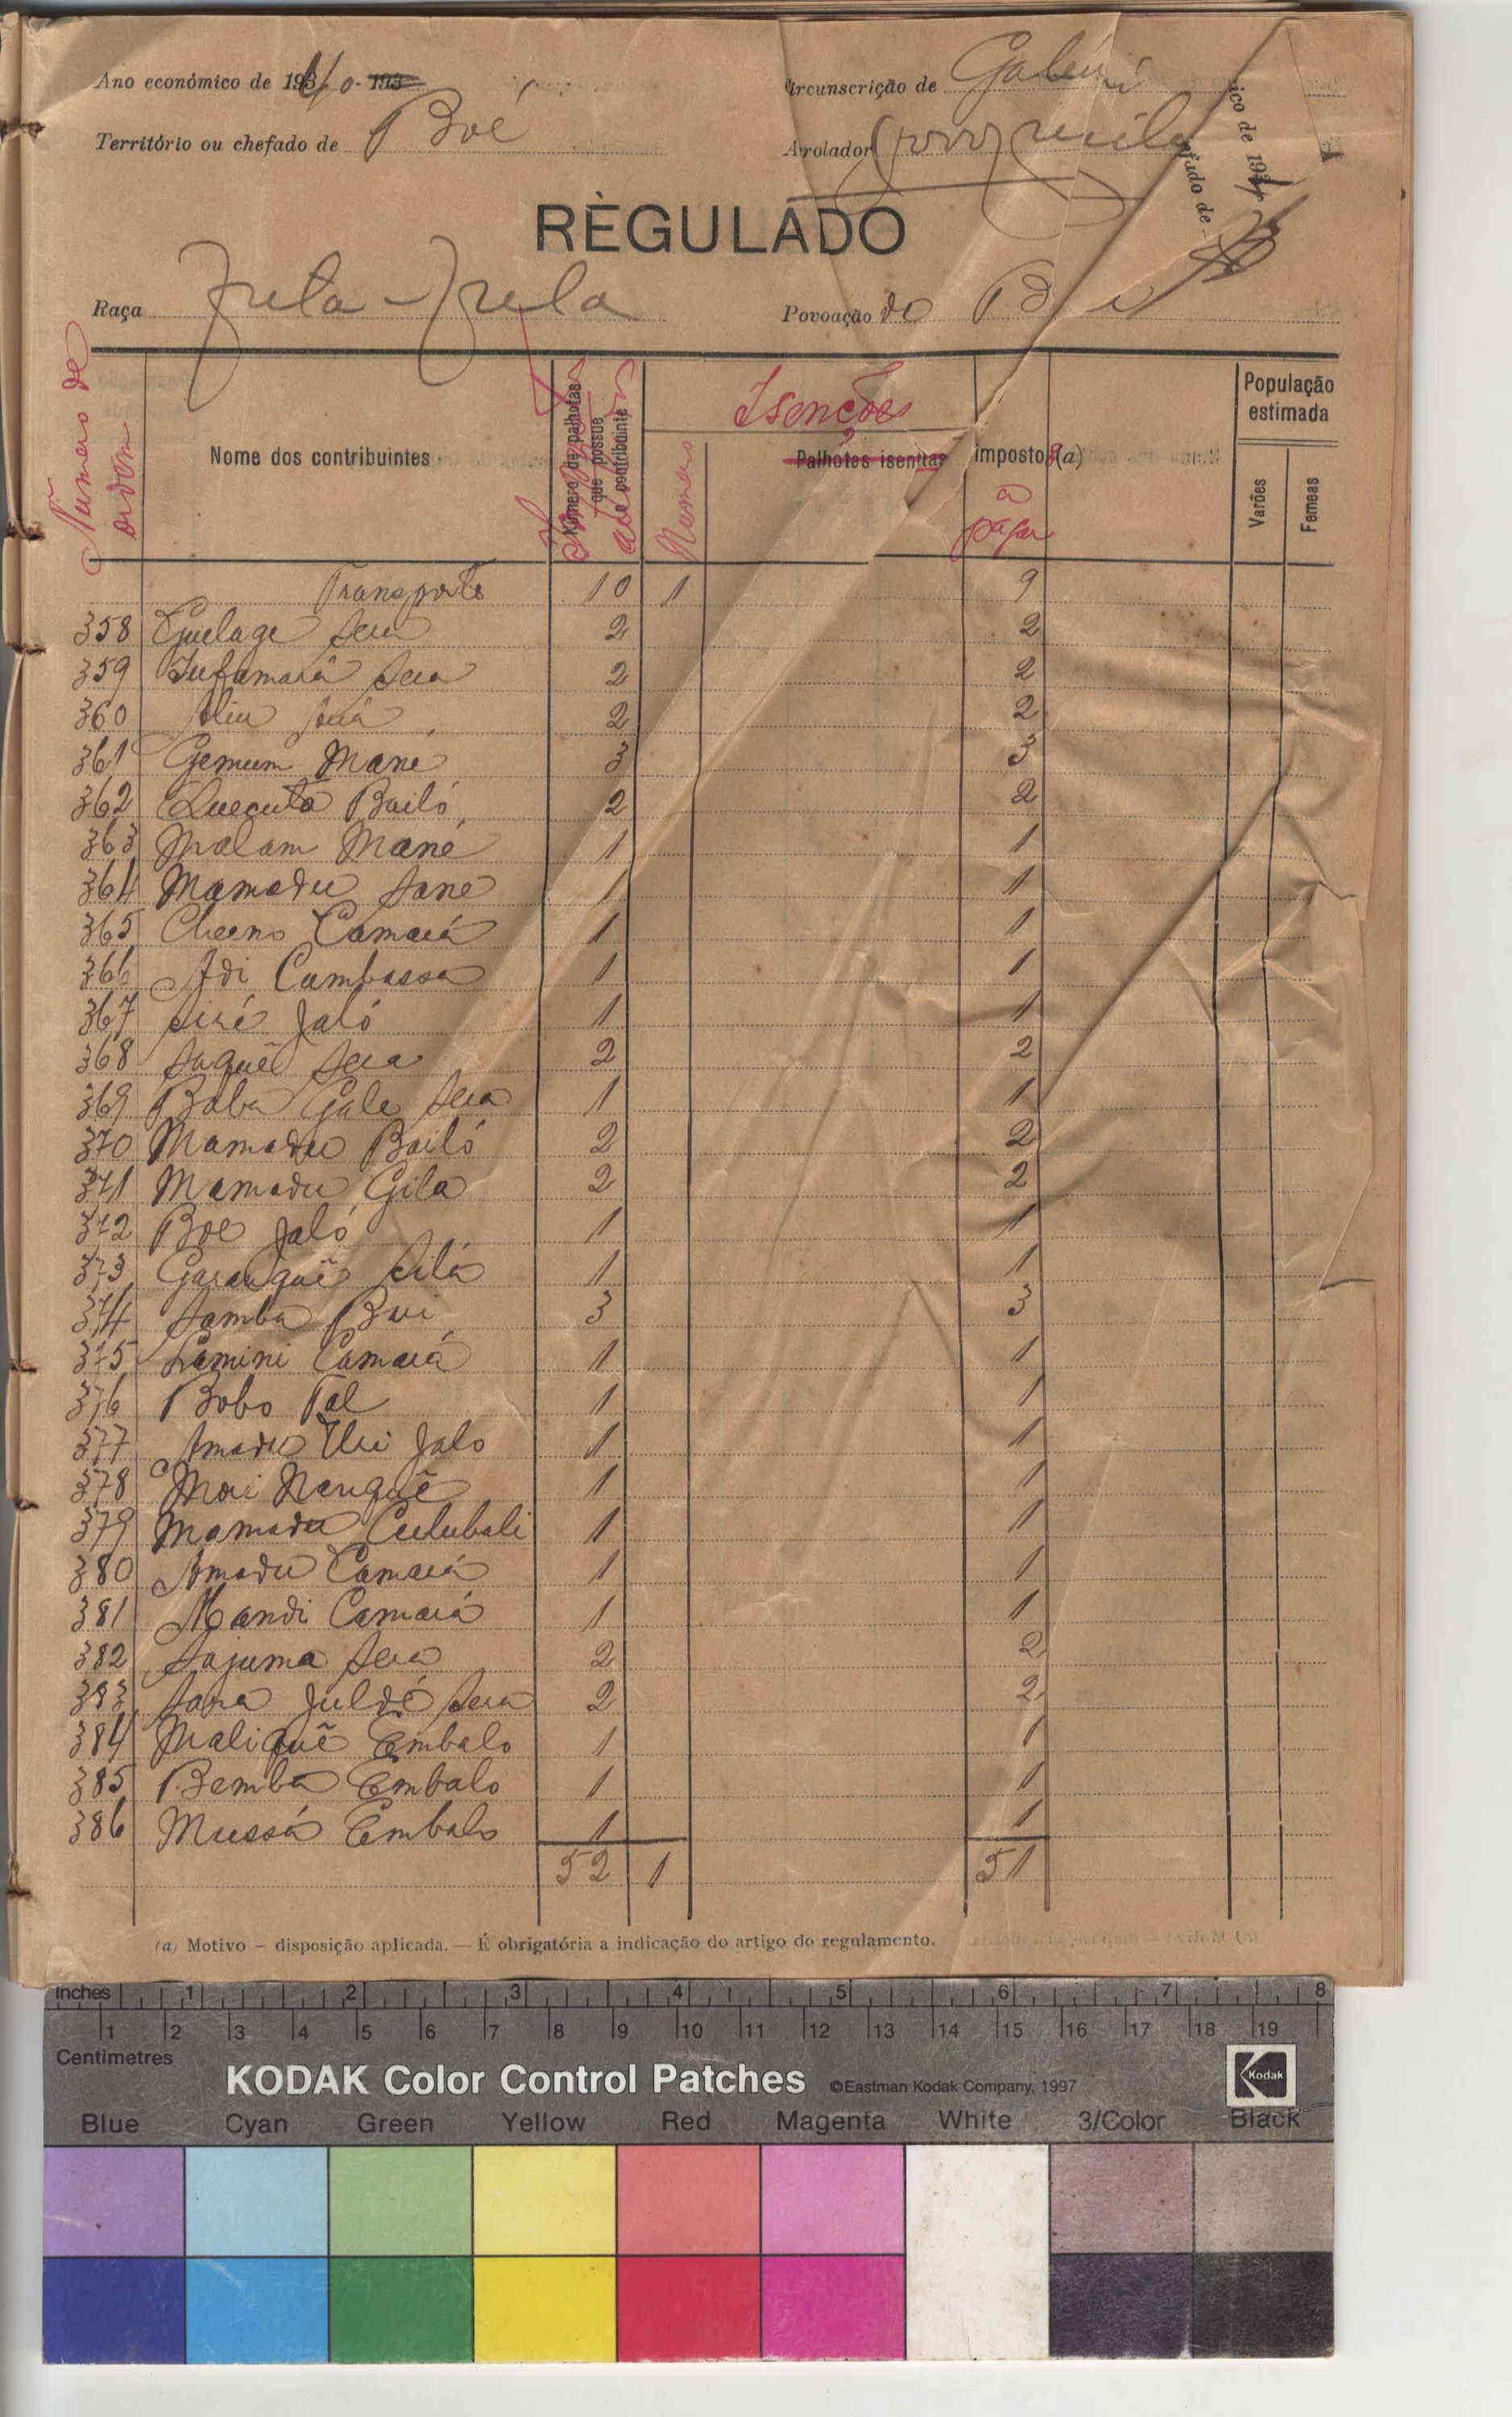 Ano económico de 1940-193
Circunscrição de Gabú
Território ou chefado de Boé
Arolador
ico de 193
fado de
RÈGULADO
Raça Futa-Fula
Povoação do Boé
Numero de ordem
Nome dos contribuintes
Número de palhotas que possue o contribuinte
Isenções
Numero
Palhotas isentas
Impostos (a)
a pagar
População estimada
Varões
Femeas
Transporte 10 1 9
358 Guelage Sera 2 2
359 Sufamará Sera 2 2
360 Aliu 2 2
361 Gemum Mané 3 3
362 Quecuta Bailó 2 2
363 Malam Mané 1 1
364 Mamadu Sane 1 1
365 Cherno Camará 1 1
366 Adi Cambassa 1 1
367 Siré Jaló 1 1
368 Saquê Sera 2 2
369 Baba Gale Sera 1 1
370 Mamadu Bailó 2 2
371 Mamadu Gila 2 2
372 Boe Jaló 1 1
373 Saranquê Silá 1 1
374 Samba Bui 3 3
375 Lamini Camará 1 1
376 Bobo Tal 1 1
377 Amadu Uri Jalo 1 1
378 Mori Nanquê 1 1
379 Mamadu Culubali 1 1
380 Amadu Camará 1 1
381 Mandi Camará 1 1
382 Sajuma Sera 2 2
383 Sana Juldé Sera 2 2
384 Maliquê Embalo 1 1
385 Bemba Embalo 1 1
386 Mussá Embalo 1 1
52 1 51
(a) Motivo – disposição aplicada. — É obrigatória a indicação do artigo do regulamento.
inches 1 2 3 4 5 6 7 8
1 2 3 4 5 6 7 8 9 10 11 12 13 14 15 16 17 18 19
Centimetres
KODAK Color Control Patches ©Eastman Kodak Company, 1997
Kodak
Blue Cyan Green Yellow Red Magenta White 3/Color Black